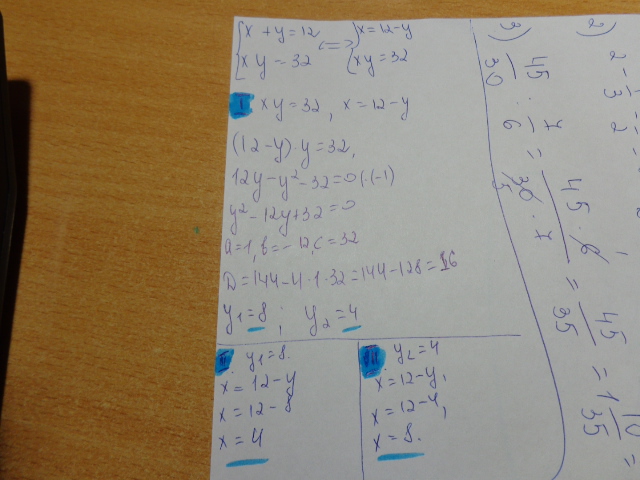 {x + y = 12 <=> {x = 12 - y
{xy = 32 {xy = 32
I xy = 32, x = 12 - y
(12 - y) · y = 32,
12y - y² - 32 = 0 | · (-1)
y² - 12y + 32 = 0
a = 1, b = -12, c = 32
D = 144 - 4 · 1 · 32 = 144 - 128 = 16
y₁ = 8 ; y₂ = 4
II. y₁ = 8.
x = 12 - y
x = 12 - 8
x = 4
III. y₂ = 4
x = 12 - y,
x = 12 - 4,
x = 8.
2)
3) 45/30 : 7/6 = 45 · 6/30 · 7 = 45/35 = 1 10/35 =